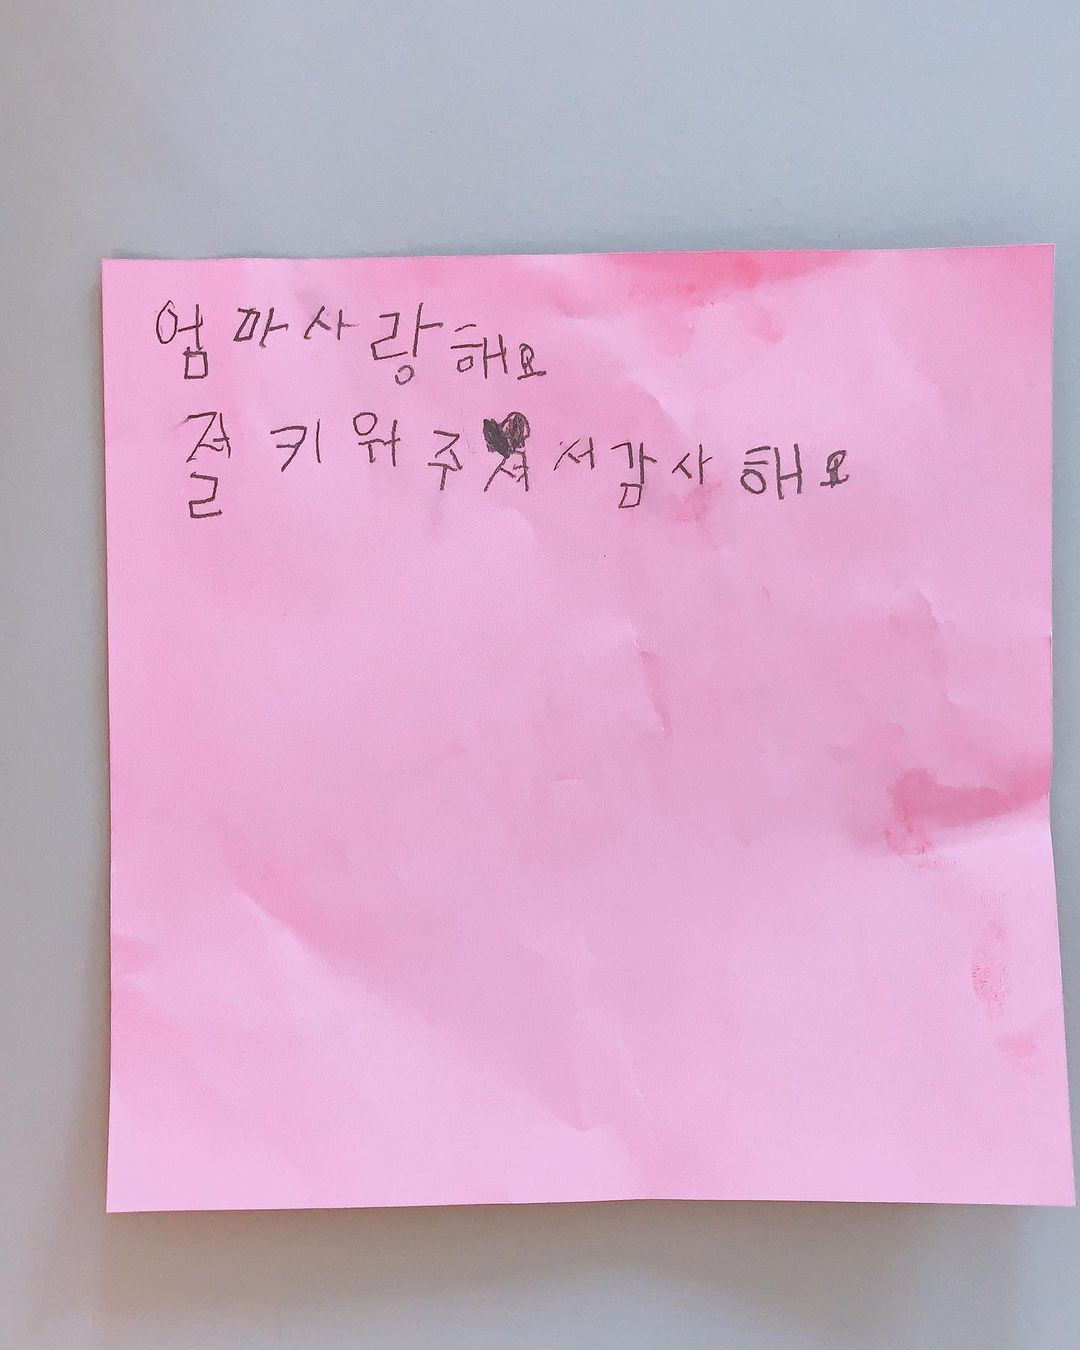 엄마사랑해요
절 키워 주셔서감사해요